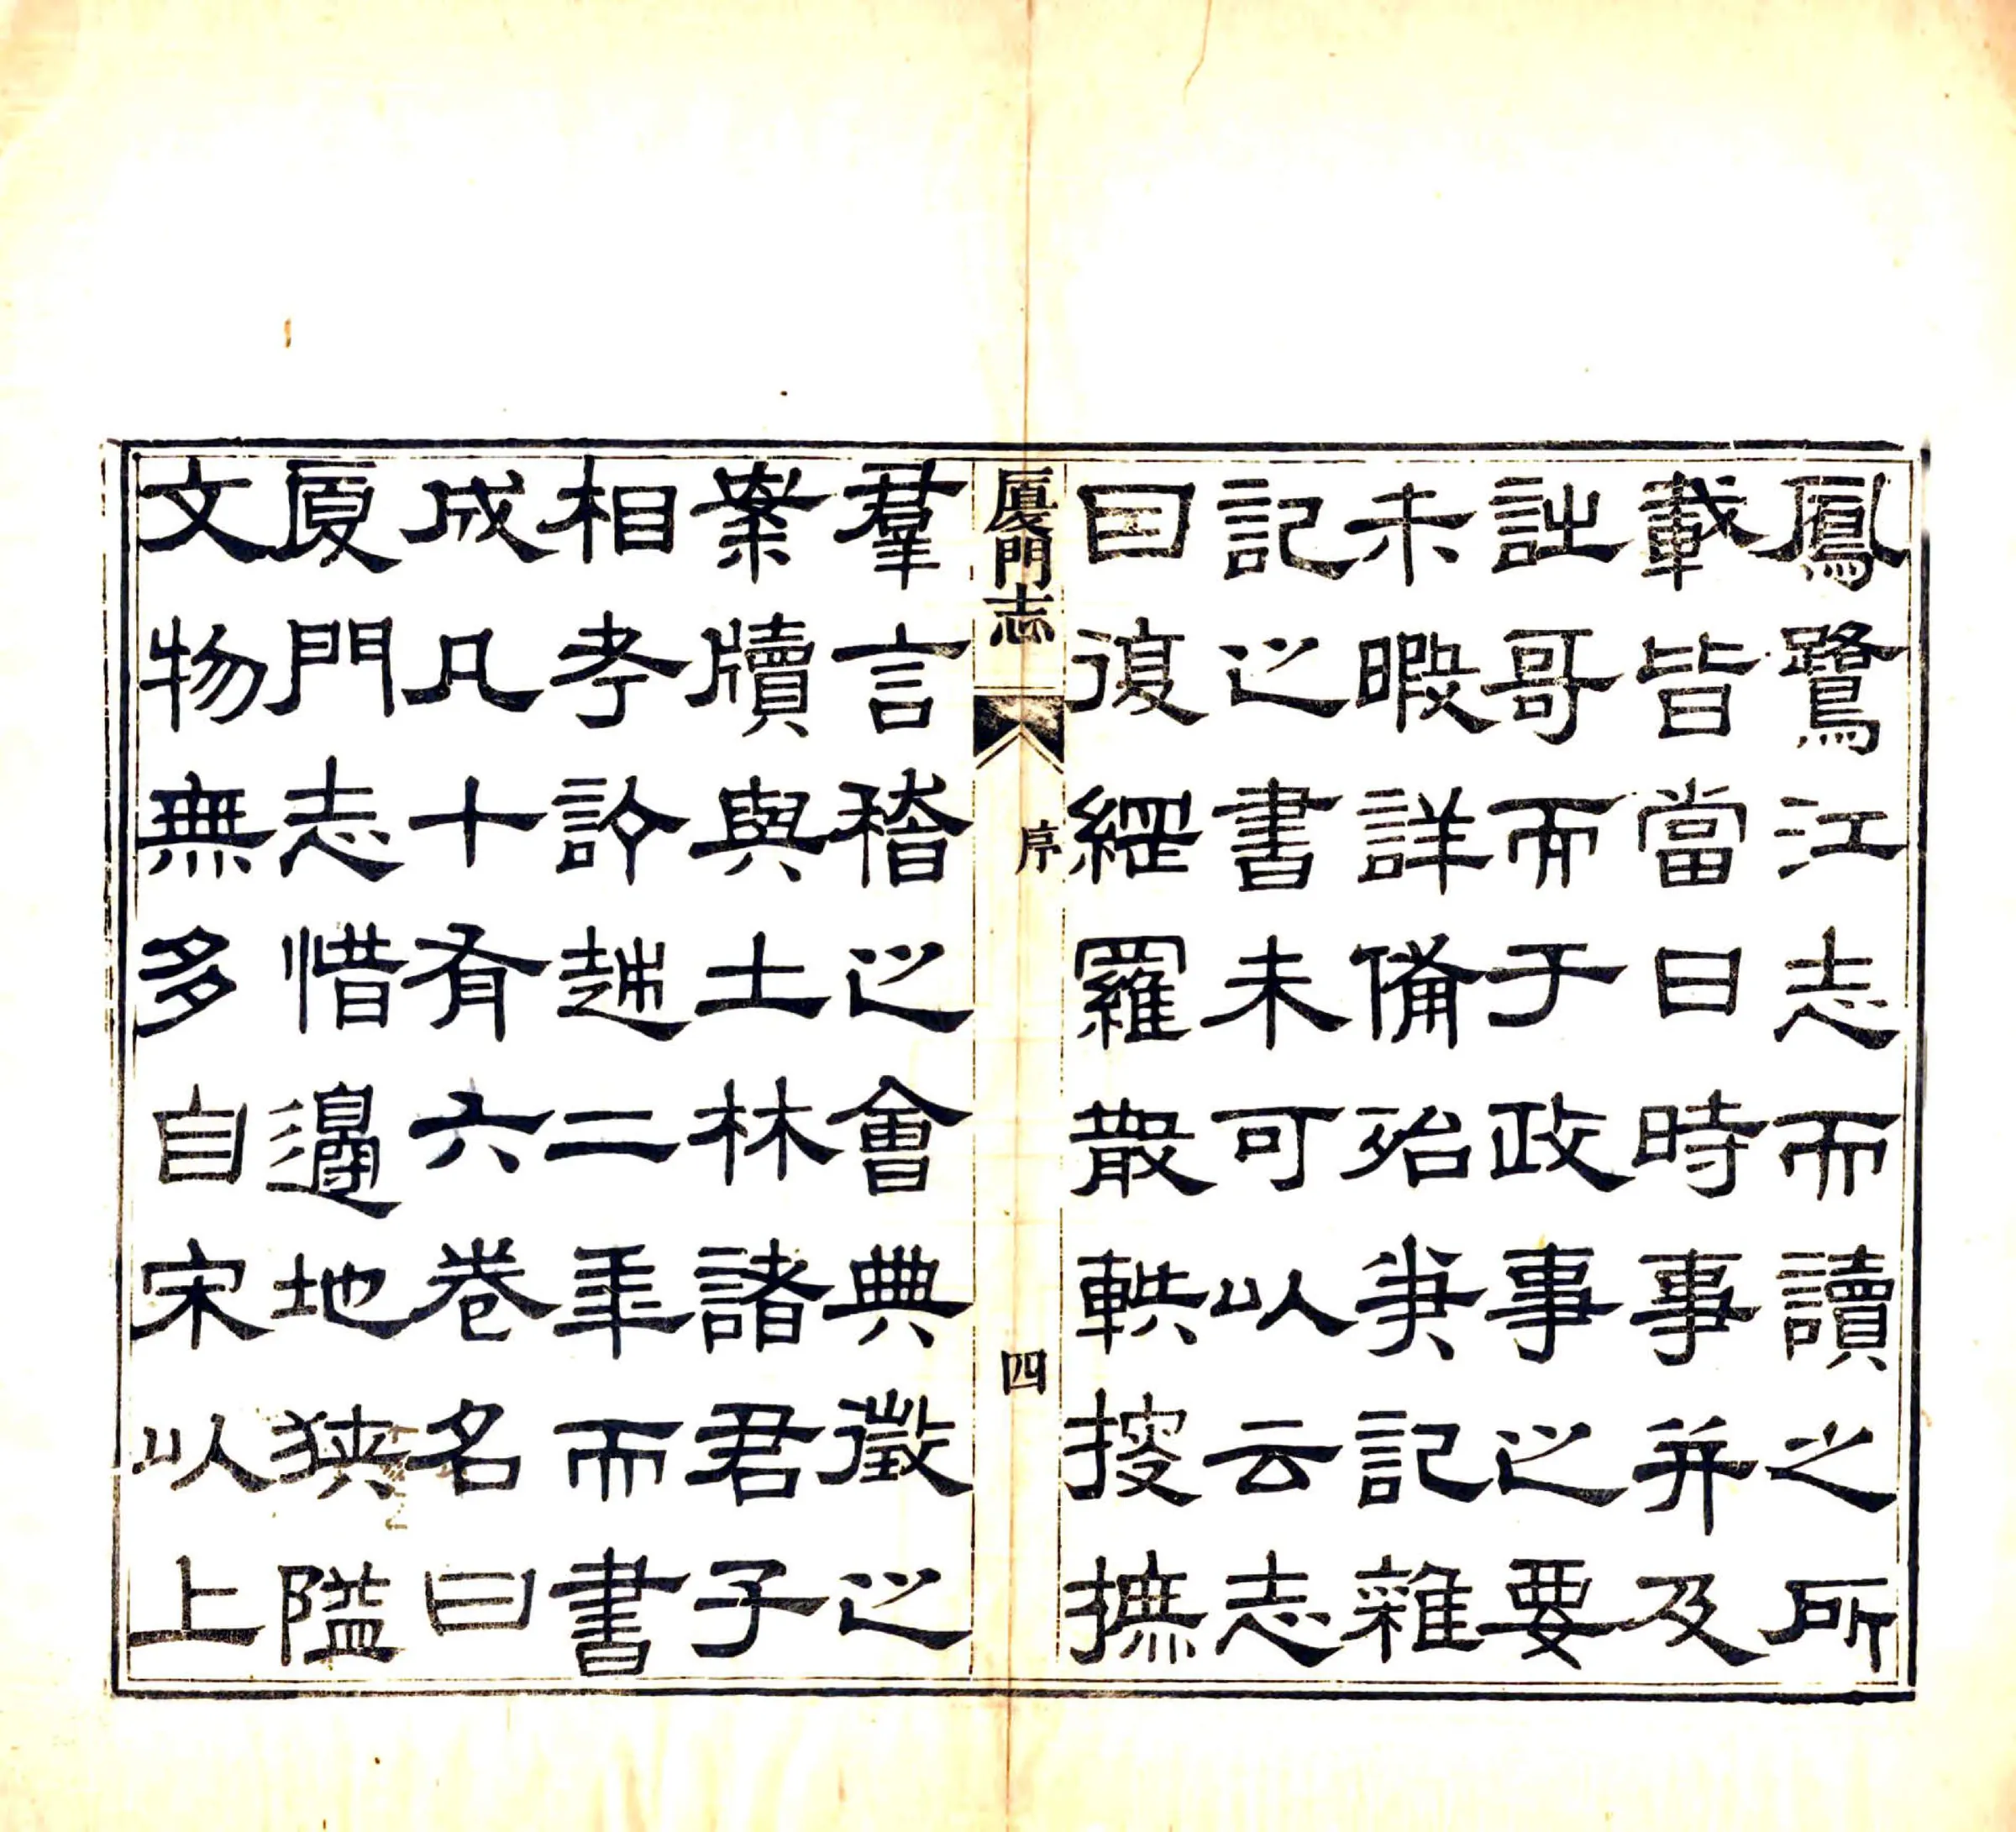 鳳鷺江志而讀之所
載皆當日時事并及
詩哥而于政事之要
未暇詳備殆記雜
記之書未可以云志
因復網羅散軼搜摭
廈門志
序
四
羣言稽之會典徵之
案牘與士林諸君子
相考訂越二年而書
成凡十有六卷名曰
廈門志惜邊地狹隘
文物無多自宋以上